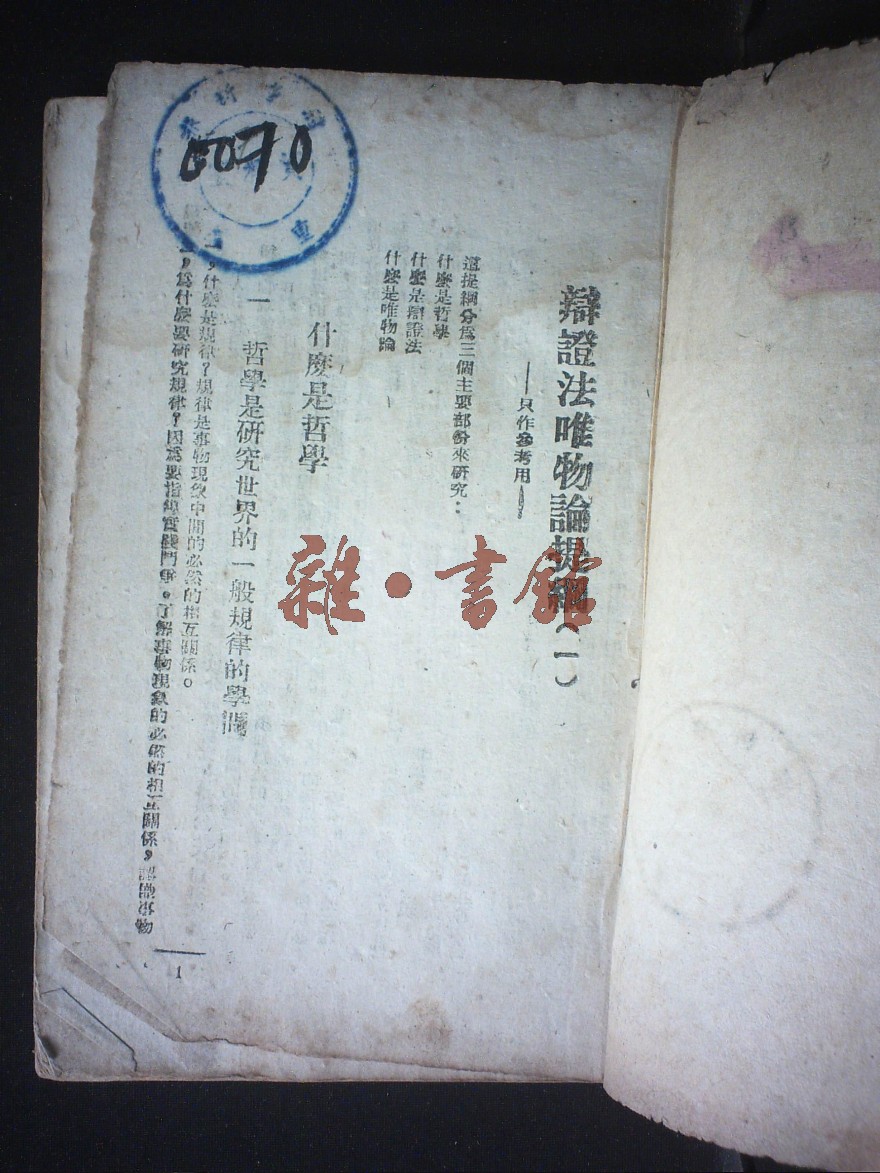 辯證法唯物論提綱(一)
——只作參考用——
這提綱分爲三個主要部份來研究：
什麼是哲學
什麼是辯證法
什麼是唯物論
什麼是哲學
一 哲學是研究世界的一般規律的學問
什麼是規律？規律是事物現象中間的必然的相互關係。
爲什麼要研究規律？因爲要指導實踐鬥爭。了解事物現象的必然的相互關係，
1
0070
雜·書館